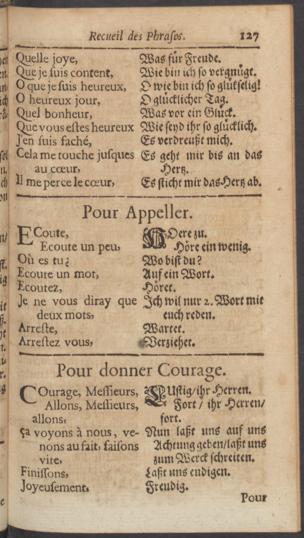 Recueil des Phrases. 127
Quelle joye, Was für Freude.
Que je suis content, Wie bin ich so vergnügt.
O que je suis heureux, O wie bin ich so glückselig!
O heureux jour, O glücklicher Tag.
Quel bonheur, Was vor ein Glück.
Que vous estes heureux Wie seyd ihr so glücklich.
J'en suis faché, Es verdreußt mich.
Cela me touche jusques Es geht mir bis an das
au cœur, Hertz.
Il me perce le cœur, Es sticht mir das Hertz ab.
Pour Appeller.
ECoute, HOere zu.
Ecoute un peu, Höre ein wenig.
Où es tu? Wo bist du?
Ecoute un mot, Auf ein Wort.
Ecoutez, Höret.
Je ne vous diray que Ich wil nur 2. Wort mit
deux mots, euch reden.
Arreste, Wartet.
Arrestez vous, Verziehet.
Pour donner Courage.
COurage, Messieurs, LUstig/ ihr Herren.
Allons, Messieurs, Fort / ihr Herren/
allons, fort.
ça voyons à nous, ve- Nun laßt uns auf uns
nons au fait, faisons Achtung geben/laßt uns
vite, zum Werck schreiten.
Finissons, Laßt uns endigen.
Joyeusement, Freudig.
Pour